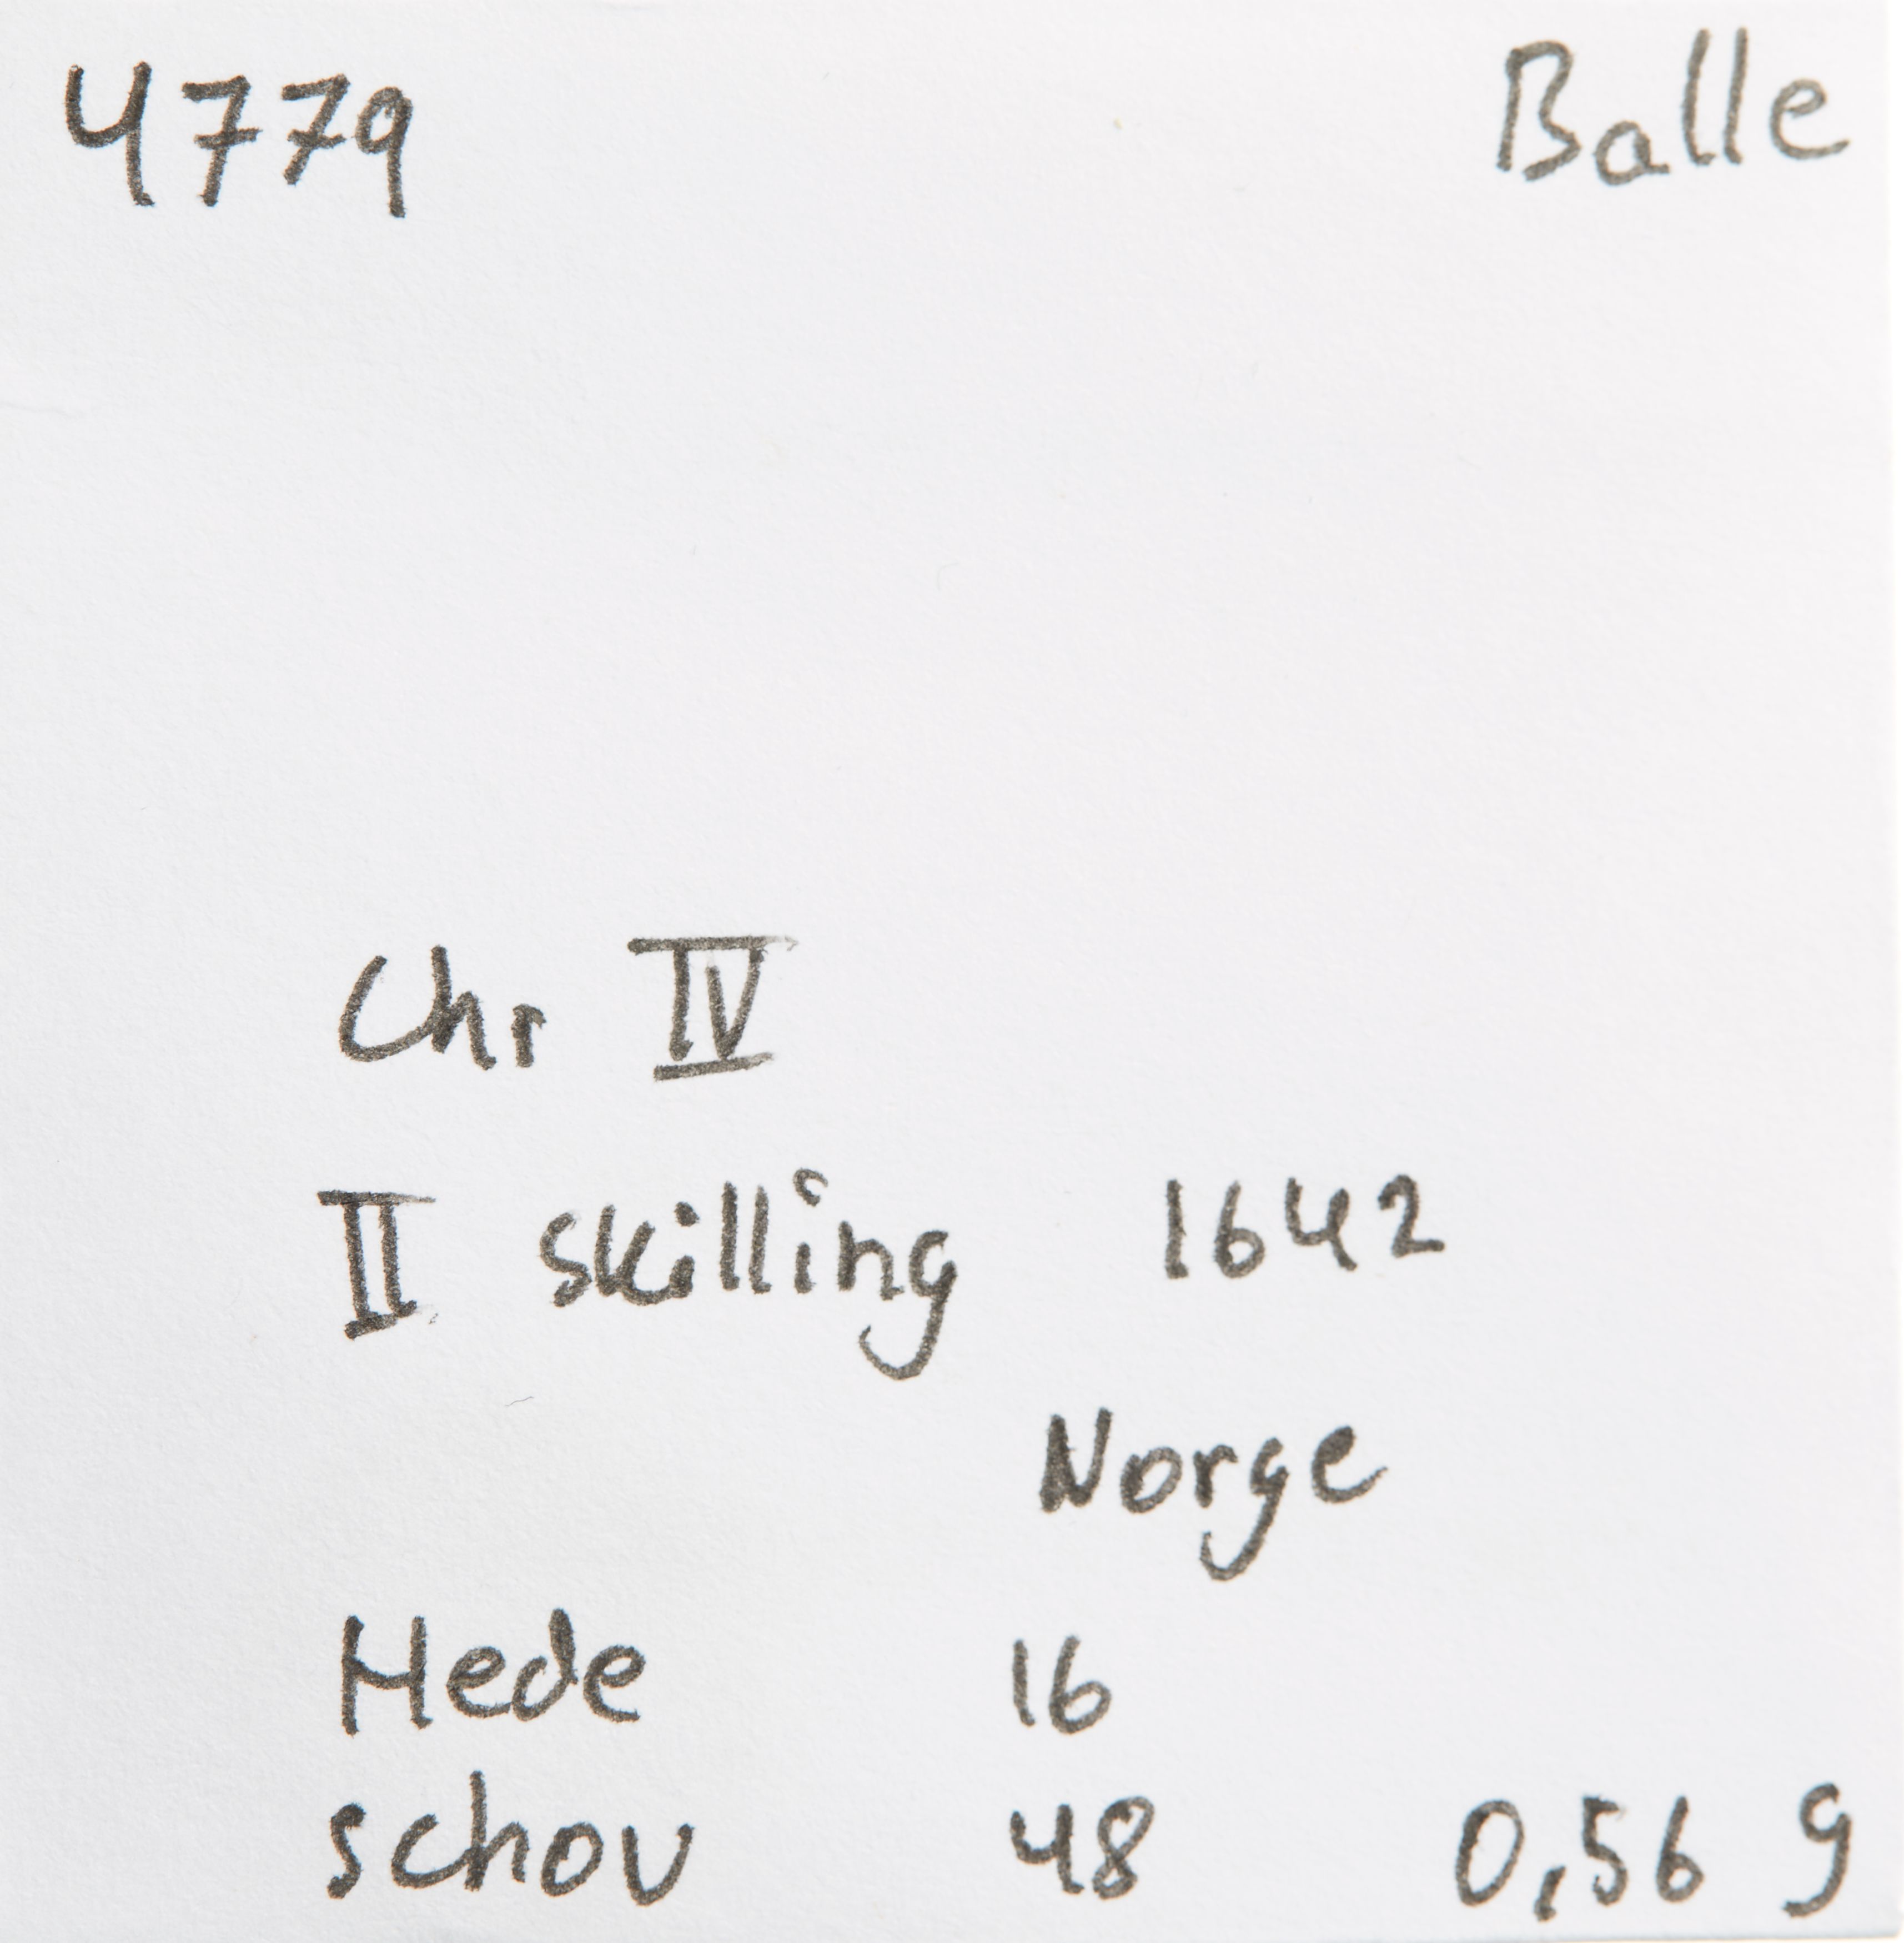 4779 Balle
Chr IV
II skilling 1642
Norge
Hede 16
schou 48 0,56 g